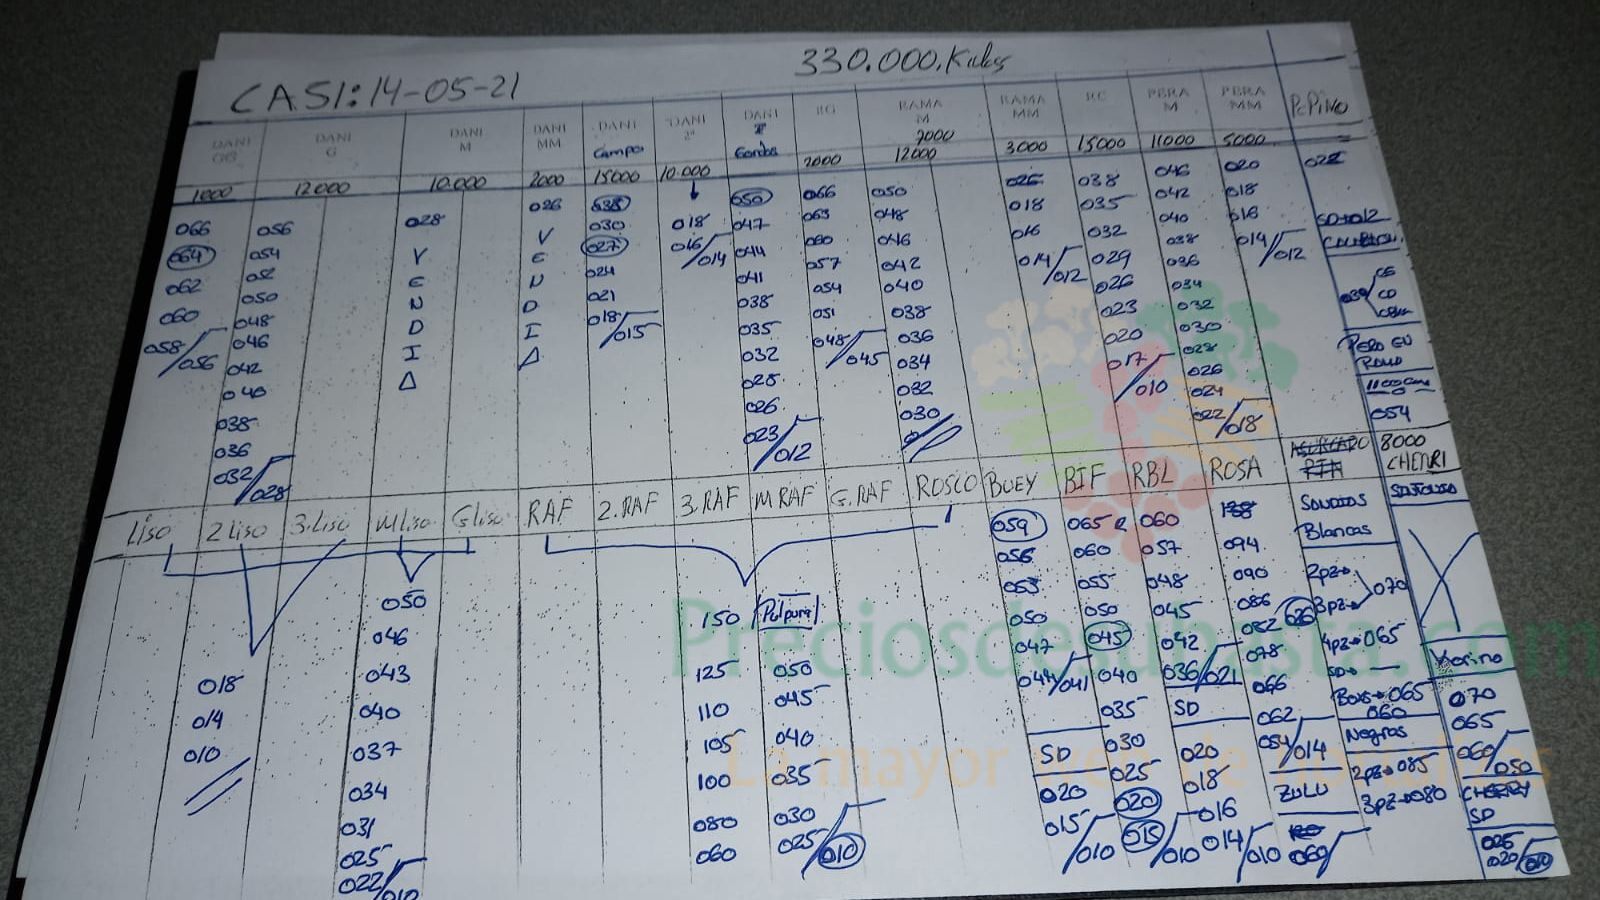 CASI: 14-05-21
330.000. Kilos
DANI GG
DANI G
DANI M
DANI MM
DANI Campo
DANI 2ª
DANI Gordos
GG
RAMA M
RAMA MM
RC
PERA M
PERA MM
PEPINO
1000
12000
10.000
2000
15000
10.000
2000
7000
12000
3000
15000
11000
5000
066
064
062
060
058/056
056
054
052
050
048
046
042
040
038
036
032/028
028
VENDIA
026
VENDIA
038
030
027
024
021
018/015
018
016/014
050
047
044
041
038
035
032
028
026
023/012
066
063
060
057
054
051
048/045
050
048
046
042
040
038
036
034
032
030
026
018
016
014/012
038
035
032
029
026
023
020
017/010
046
042
040
038
036
034
032
030
028
026
024
022/018
020
018
016
014/012
022
SD→012
PERO EN
RAMO
054
8000
CHERRI
LISO
2 LISO
3. LISO
M Liso
G liso
RAF
2. RAF
3. RAF
M RAF
G. RAF
ROSCO
BUEY
BIF
RBL
ROSA
Sandias
Blancas
018
014
010
050
046
043
040
037
034
031
025
022/010
150
125
110
105
100
080
060
Pulpura
050
045
040
035
030
025/010
059
056
053
050
047
044/041
SD
020
015/010
065
060
055
050
045
040
035
030
025
020
015/010
060
057
048
045
042
036/021
SD
020
018
016
014/010
094
090
086
082
078
066
062
054/014
ZULU
060
2pz→
3pz→ 070
4pz→065
SD→
Bous→065
060
Negras
2pz→085
3pz→080
070
065
060/050
CHERRY
SD
025
020/010
Preciosdesubasta.com
La mayor